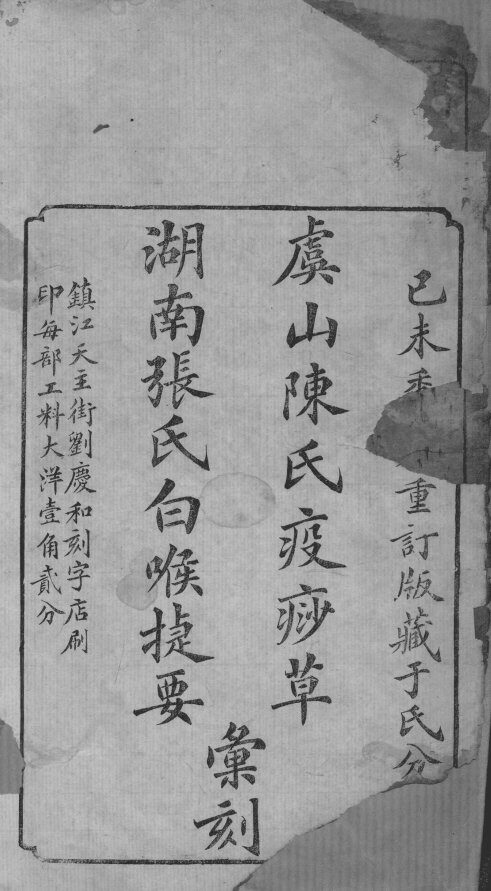 己未季重訂版藏于氏分
虞山陳氏疫痧草
湖南張氏白喉捷要
彙刻
鎮江天主街劉慶和刻字店刷
印每部工料大洋壹角貳分